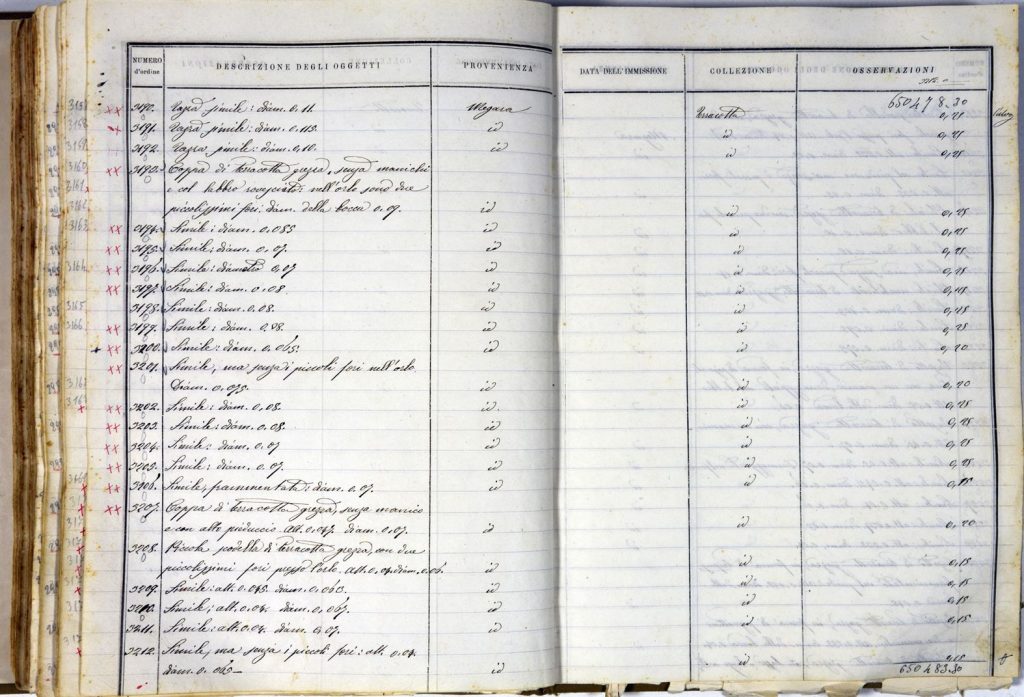 NUMERO d'ordine DESCRIZIONE DEGLI OGGETTI PROVENIENZA DATA DELL'IMMISSIONE COLLEZIONE OSSERVAZIONI
650478.30
3190. Tazza simile: diam. 0,11. Megara Terracotta 0,25
3191. Tazza simile: diam. 0,115. id id 0,25
3192. Tazza simile: diam. 0,10. id id 0,25
3193. Coppa di Terracotta grezza, senza manichi
e col labbro rovesciato: nell'orlo sono due
piccolissimi fori: diam. della bocca 0,09. id id 0,25
3194. Simile: diam. 0,085 id id 0,25
3195. Simile: diam. 0,07. id id 0,25
3196. Simile: diametro 0,07 id id 0,25
3197. Simile: diam. 0,08 id id 0,25
3198. Simile: diam. 0,08. id id 0,25
3199. Simile: diam. 0,08. id id 0,25
3200. Simile: diam. 0,065. id id 0,20
3201. Simile, ma senza i piccoli fori nell'orlo
Diam. 0,075. id id 0,20
3202. Simile: diam. 0,08. id id 0,25
3203. Simile: diam. 0,08. id id 0,25
3204. Simile: diam. 0,07 id id 0,25
3205. Simile: diam. 0,07. id id 0,25
3206. Simile, frammentata: diam. 0,07. id id 0,15
3207. Coppa di terracotta grezza, senza manico
e con alto pieduccio. Alt. 0,047. diam. 0,07. id id 0,20
3208. Piccola padella di Terracotta grezza, con due
piccolissimi fori presso l'orlo. Alt. 0,04. diam. 0,06. id id 0,15
3209. Simile: alt. 0,045. diam. 0,060. id id 0,15
3210. Simile; alt. 0,04. diam. 0,067. id id 0,15
3211. Simile: alt. 0,04. diam. 0,07. id id 0,15
3212. Simile, ma senza i piccoli fori: alt. 0,04
diam. 0,06 id id 0,15
650483.30